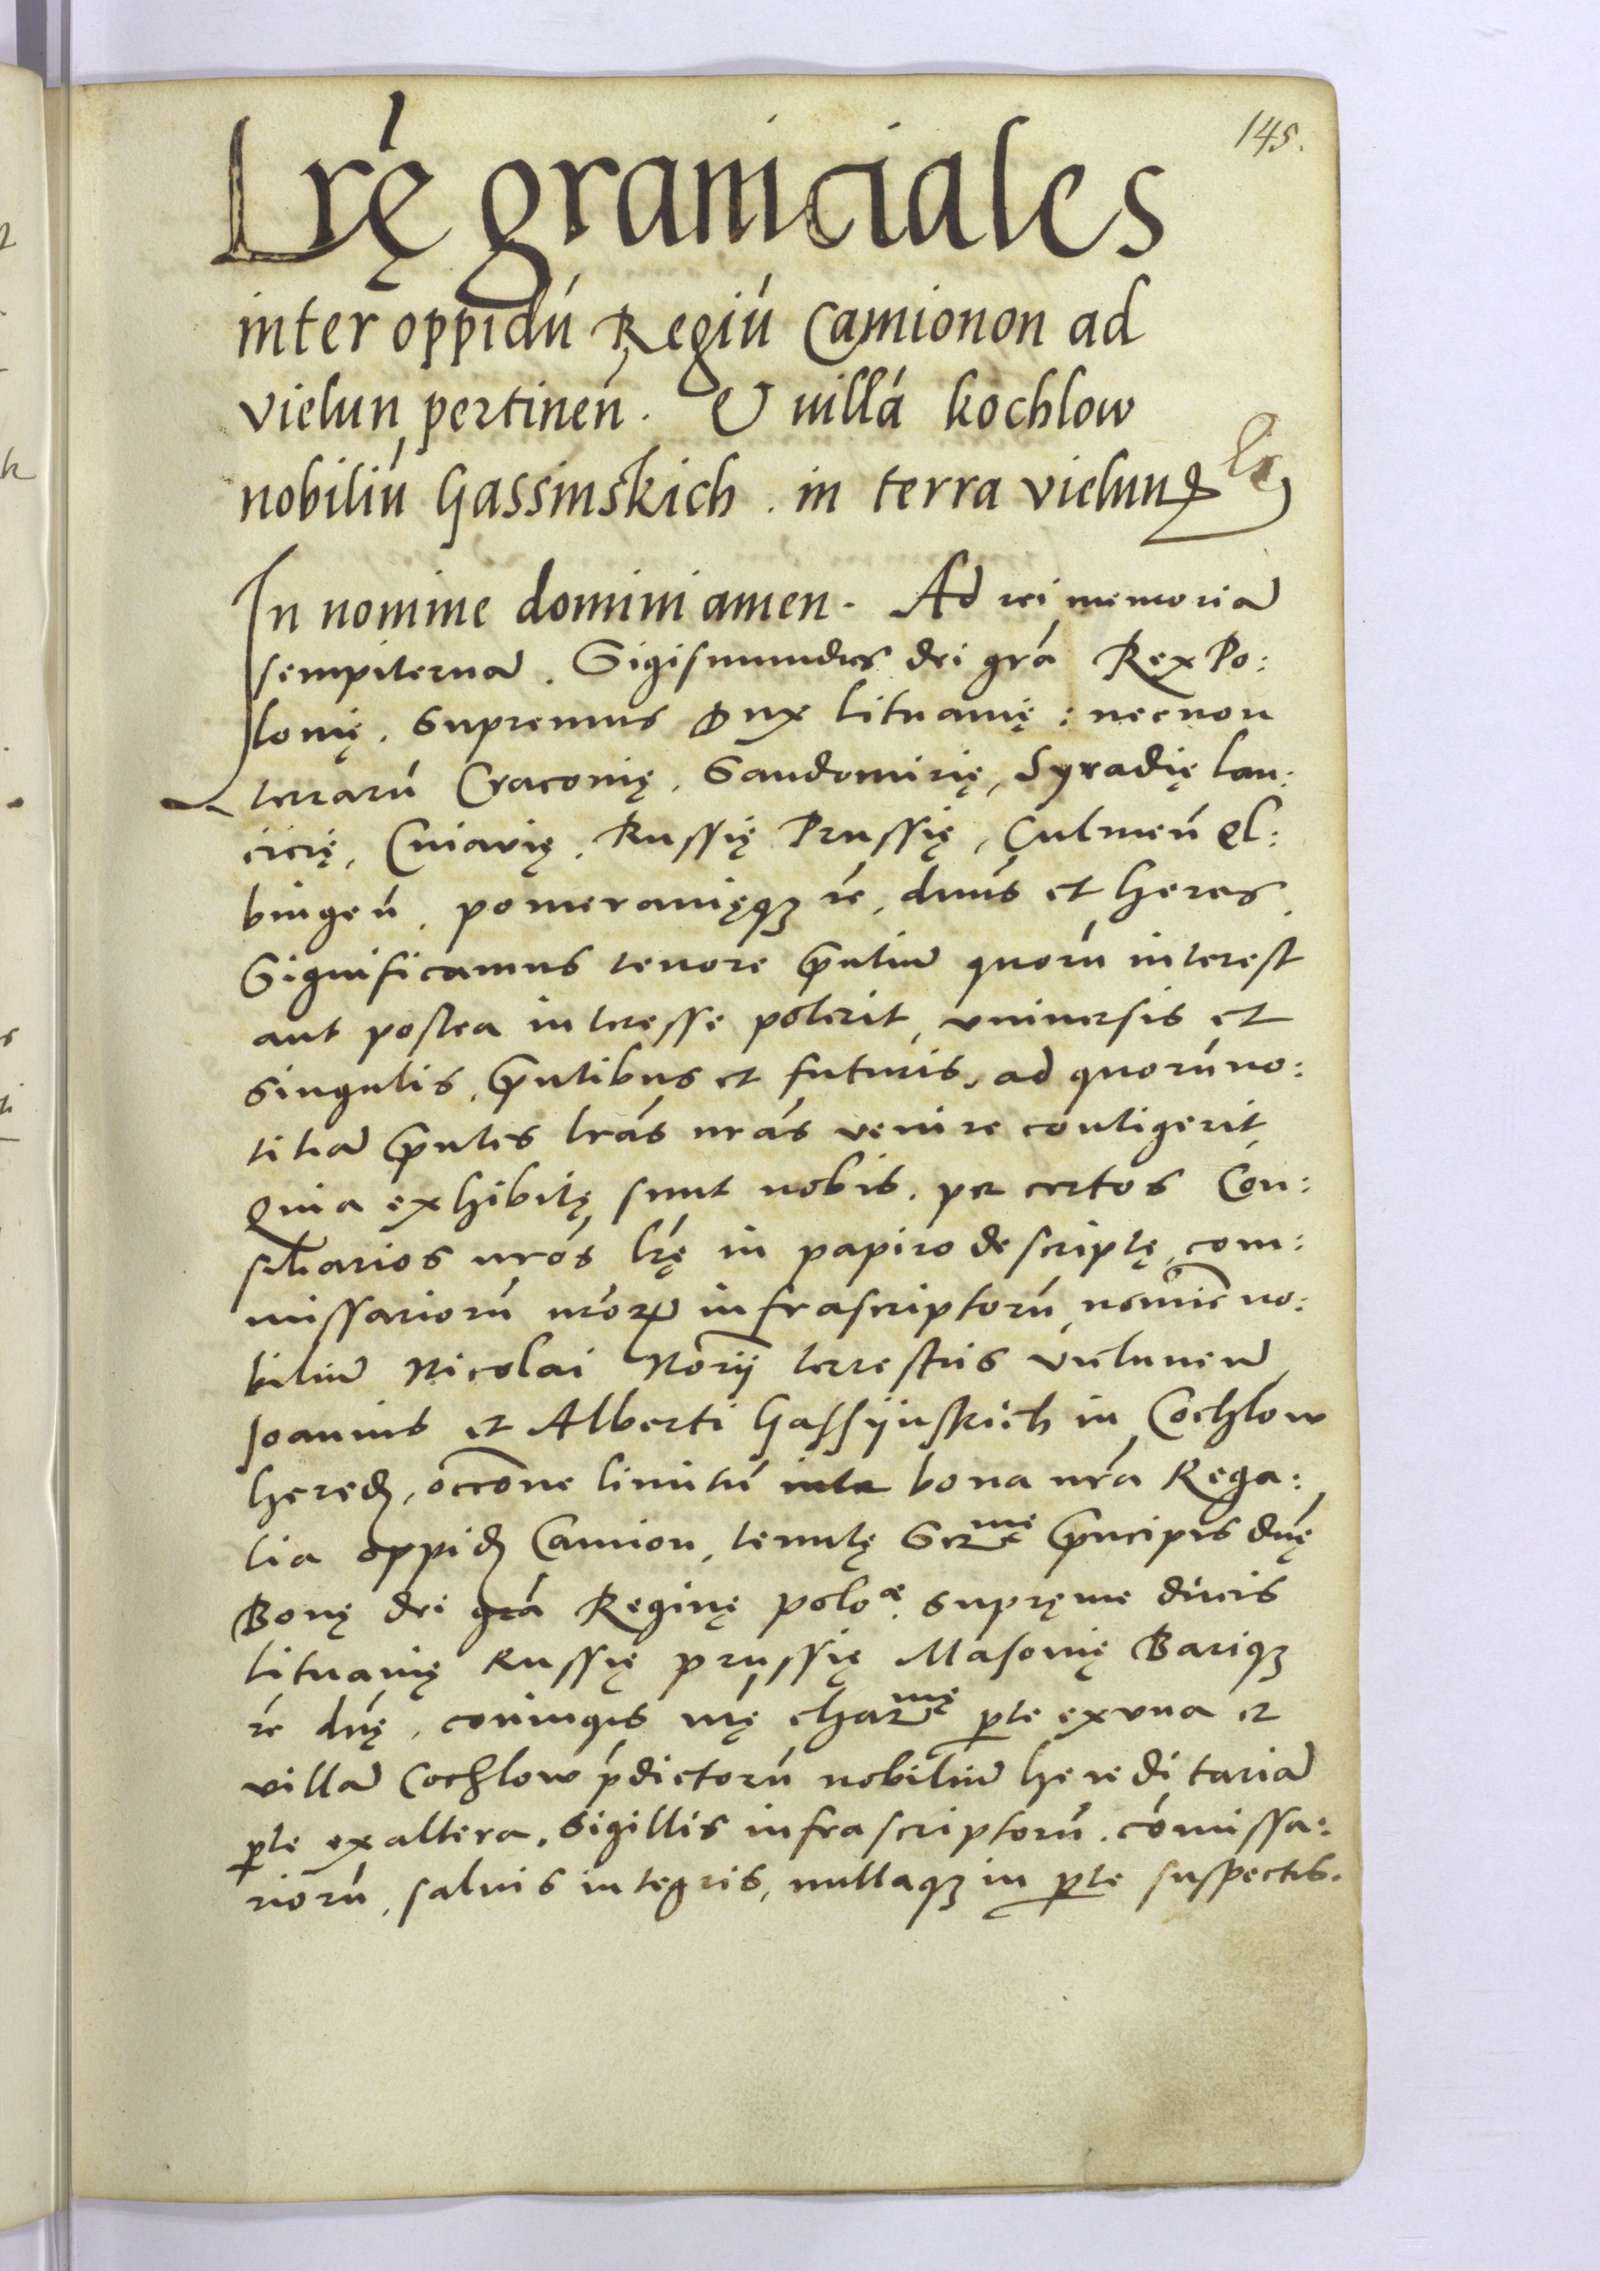 145.
Lrę graniciales
inter oppidū Regiū Camionon ad
vielun pertineñ. Et villā kochlow
nobiliū Gassinskich. in terra vielun
In nomine domini amen. Ad rei memoriā
sempiternā. Sigismundus dei grā Rex Po:
lonię. Supremus Dux lituanię: necnon
terrarū Craconię, Sandomirię, Syradię lan:
cicię, Cuiavię. Russię Prussię, Culmeñ El:
bingeñ. pomeranięqꝫ rē. dnūs et heres.
Significamus tenore pñtium quorū interest
aut postea interesse poterit, vniuersis et
singulis, pñtibus et futuris, ad quorū no:
titiā pñtes lrās nrās venire contigerit,
Quia exhibitę sunt nobis. per certos Con:
siliarios nrōs lrę in papiro descriptę, com:
missariorū nrōrꝫ infrascriptorū, nomīe no:
biliū Nicolai Notrij terrestris vieluneñ
Joannis et Alberti Gassijnskich in Cochlow
hered, occōne limitū inter bona nrā Rega:
lia oppid Camion, tenutę Sermę Principis dnę
Bonę dei grā Reginę poloę. supręme ducis
lituanię Russię prussię Masouię Bariqꝫ
rē dnę, coniugis nrę charmę pte ex vna et
villā Cochlow pdictorū nobiliū hereditariā
pte ex altera. Sigillis infrascriptorū. cōmissa:
riorū, saluis integris, nullaqꝫ in pte suspectis.